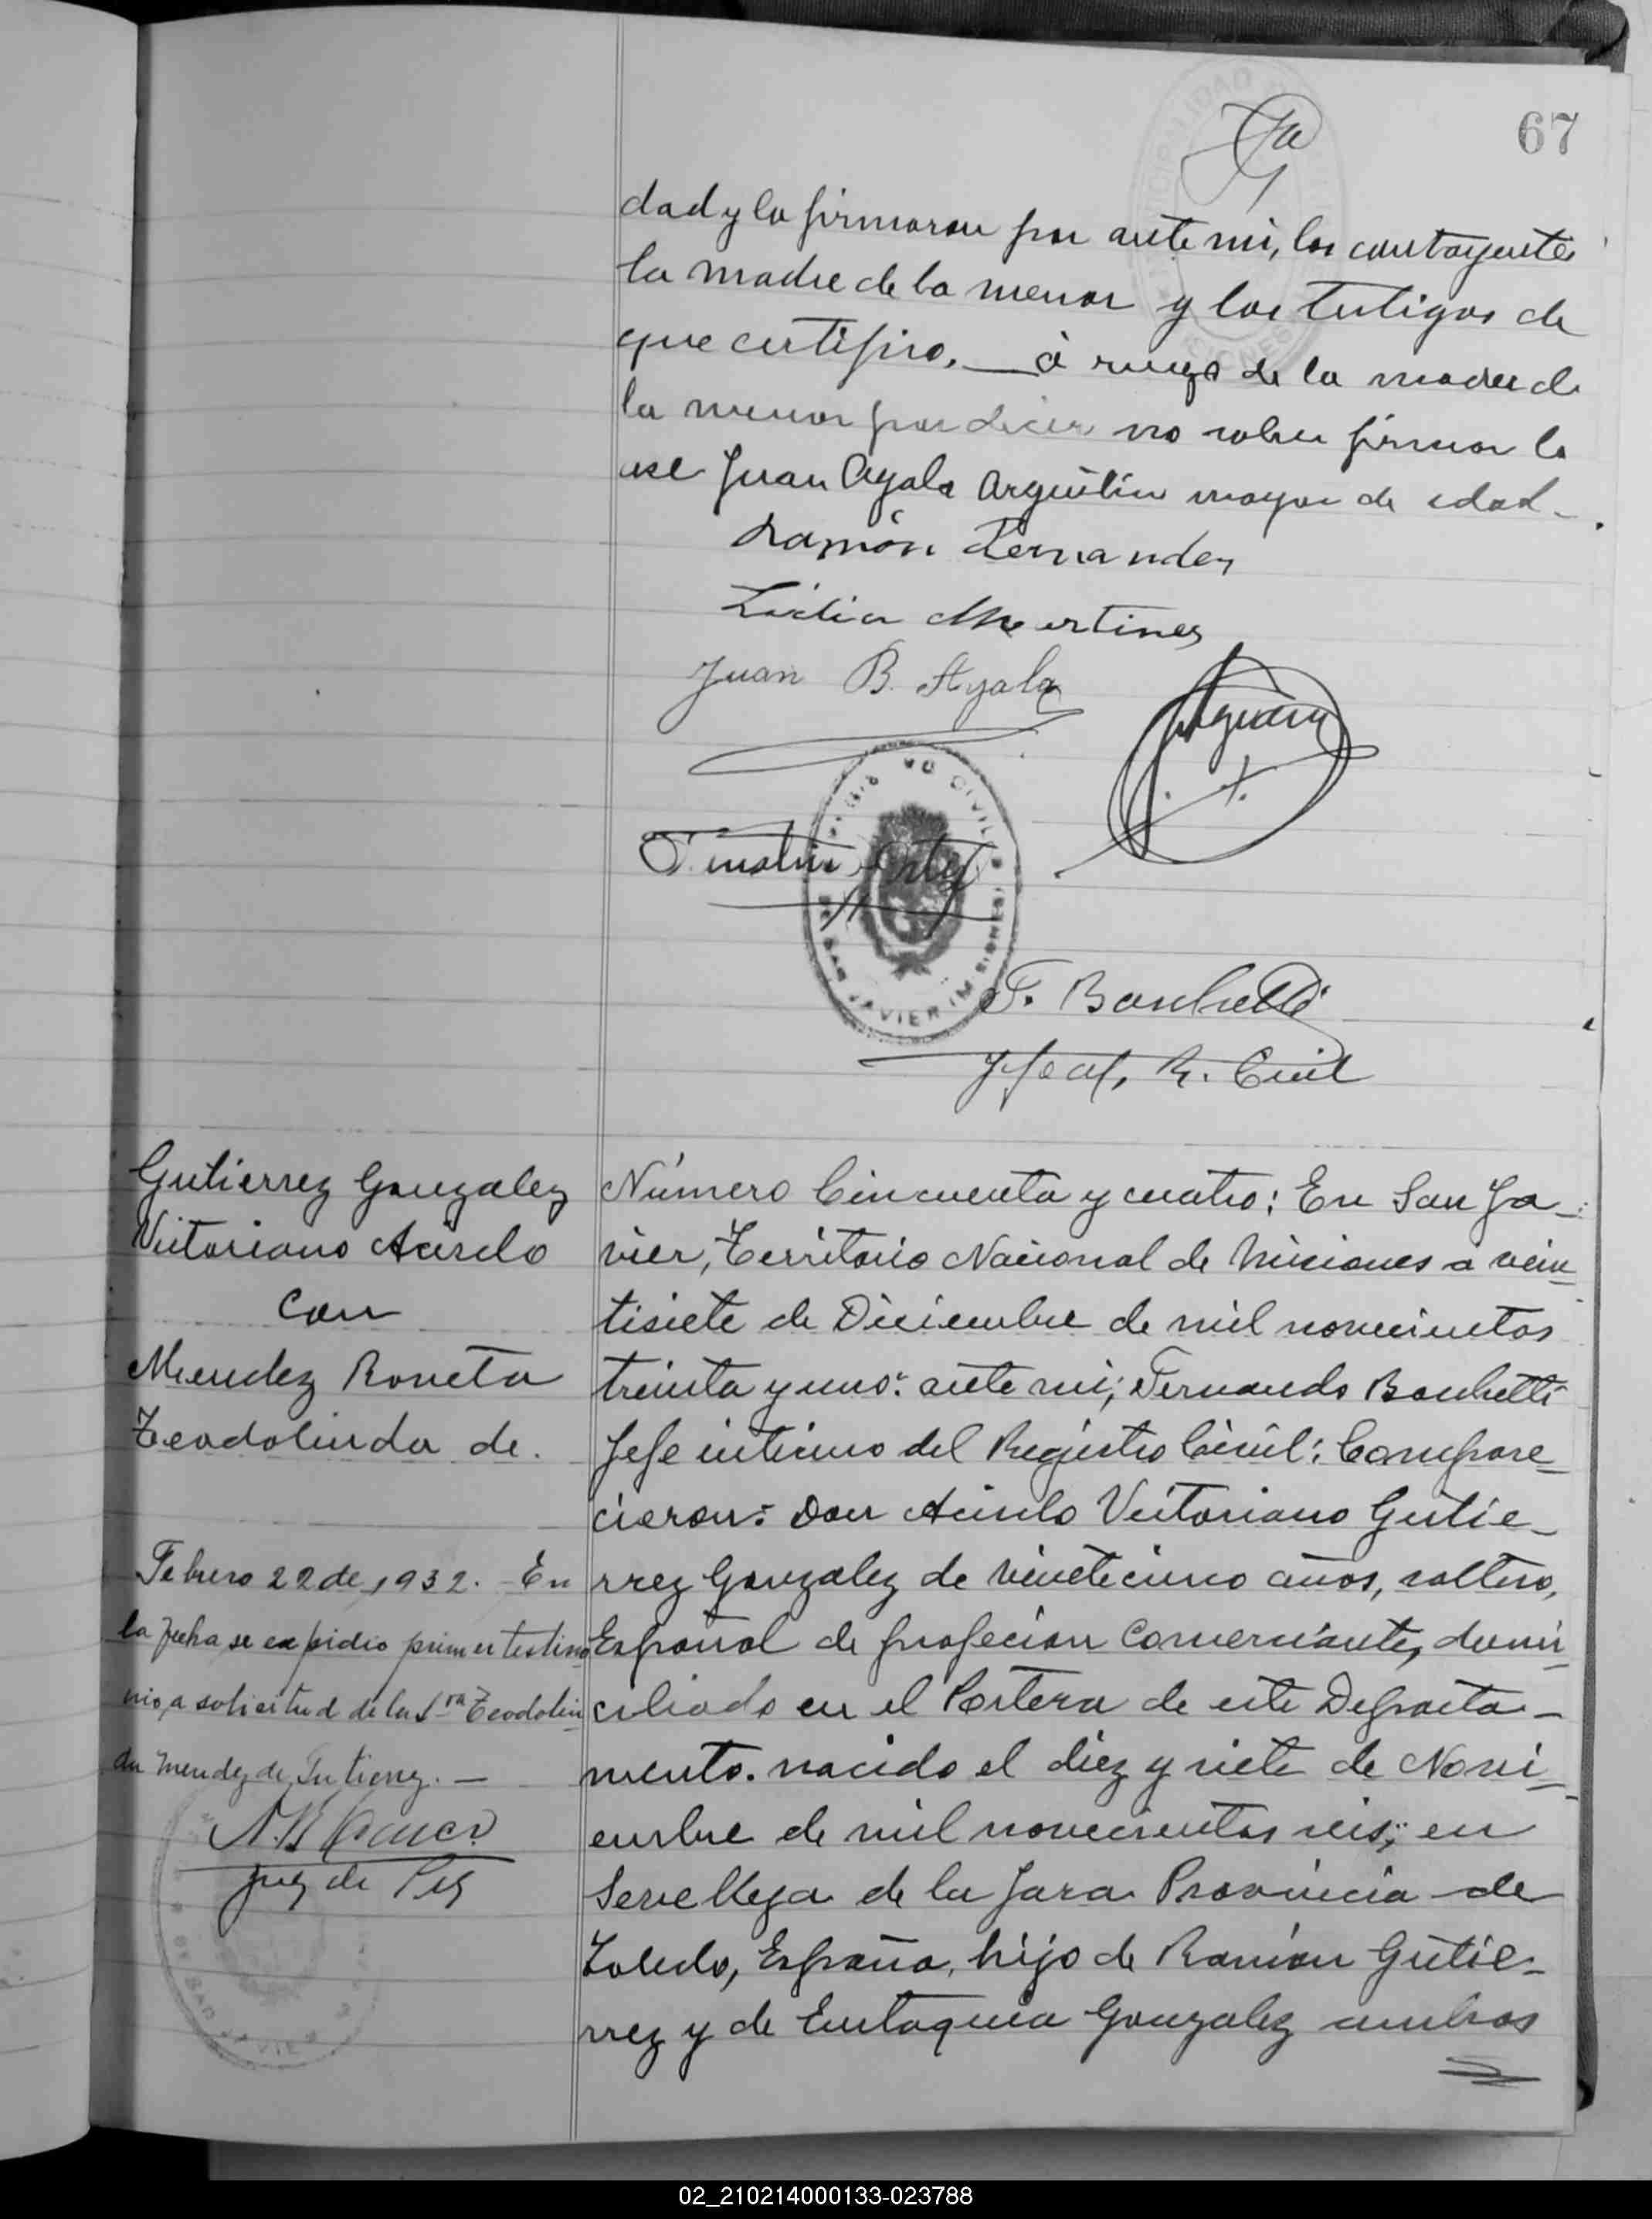 67
dad y la firmaron por ante mi, los contrayentes
la madre de la menor y los testigos de
que certifico. — á ruego de la madre de
la menor por decir no saber firmar lo
ase Juan Ayala Argentino mayor de edad —.
Ramón Fernandez
Lidia Martinez
Juan B. Ayala
SAN JAVIER (MISIONES)
F. Bonchetti
Jefe del R. Civil
Gutierrez Gonzalez
Victoriano Acirclo
con
Mendez Roneta
Teodolinda de.
Febrero 22 de 1932. - En
la fecha se expidio primer testimo
nio, a solicitud de la Sra Teodolin
da Mendez de Gutierrez. —
Juez de Paz
Número Cincuenta y cuatro: En San Ja-
vier, Territorio Nacional de Misiones a vein-
tisiete de Diciembre de mil novecientos
treinta y uno: ante mi; Fernando Bonchetti
Jefe interino del Registro Civil: Compare-
cieron: Don Acirclo Victoriano Gutie-
rrez Gonzalez de veinticinco años, soltero,
Español de profecion Comerciante, domi-
ciliado en el Portera de este Departa-
mento. nacido el diez y siete de Novi-
embre de mil novecientos seis; en
Sevelleja de la Jara Provincia de
Toledo, España, hijo de Ramón Gutie-
rrez y de Eustaquia Gonzalez ambos
02_210214000133-023788